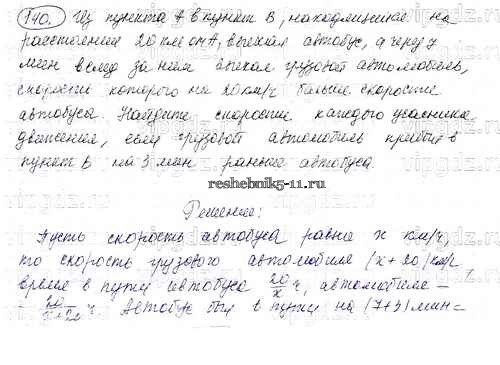 140. Из пункта А в пункт В, находящийся на
расстоянии 20 км от А, выехал автобус, а через 7
мин вслед за ним выехал грузовой автомобиль,
скорость которого на 20 км/ч больше скорости
автобуса. Найдите скорость каждого участника
движения, если грузовой автомобиль прибыл в
пункт В на 3 мин раньше автобуса.
reshebnik5-11.ru
Решение:
Пусть скорость автобуса равна x км/ч,
то скорость грузового автомобиля (x + 20) км/ч
время в пути автобуса 20/x ч, автомобиля –
20/x+20 ч. Автобус был в пути на (7+3) мин =